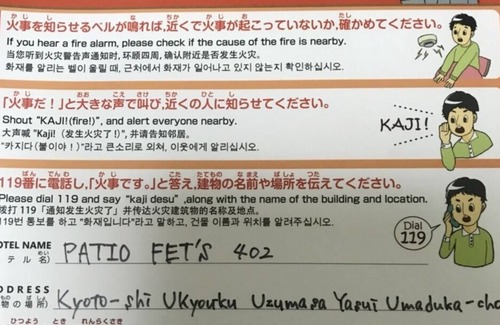 火事を知らせるベルが鳴れば,近くで火事が起こっていないか,確かめてください。
If you hear a fire alarm, please check if the cause of the fire is nearby.
当您听到火灾警告声通知时,环顾四周,确认附近是否发生火灾。
화재를 알리는 벨이 울릴 때, 근처에서 화재가 일어나고 있지 않는지 확인하십시오.
「火事だ!」と大きな声で叫び,近くの人に知らせてください。
Shout "KAJI!(fire!)", and alert everyone nearby.
大声喊"Kaji!(发生火灾了!)",并请告知邻居。
"카지다(불이야!)"라고 큰소리로 외쳐, 이웃에게 알리십시오.
KAJI!
119番に電話し,「火事です。」と答え,建物の名前や場所を伝えてください。
Please dial 119 and say "kaji desu" ,along with the name of the building and location.
拨打 119「通知发生火灾了」并传达火灾建筑物的名称及地点。
119번 통보를 하고 "화재입니다"라고 말하고, 건물 이름과 위치를 알려주십시오.
Dial
119
OTEL NAME
テル名)
PATIO FET'S 402
DDRESS
物の場所)
Kyoto-shi Ukyouku Uzumasa Yasui Umaduka-cho